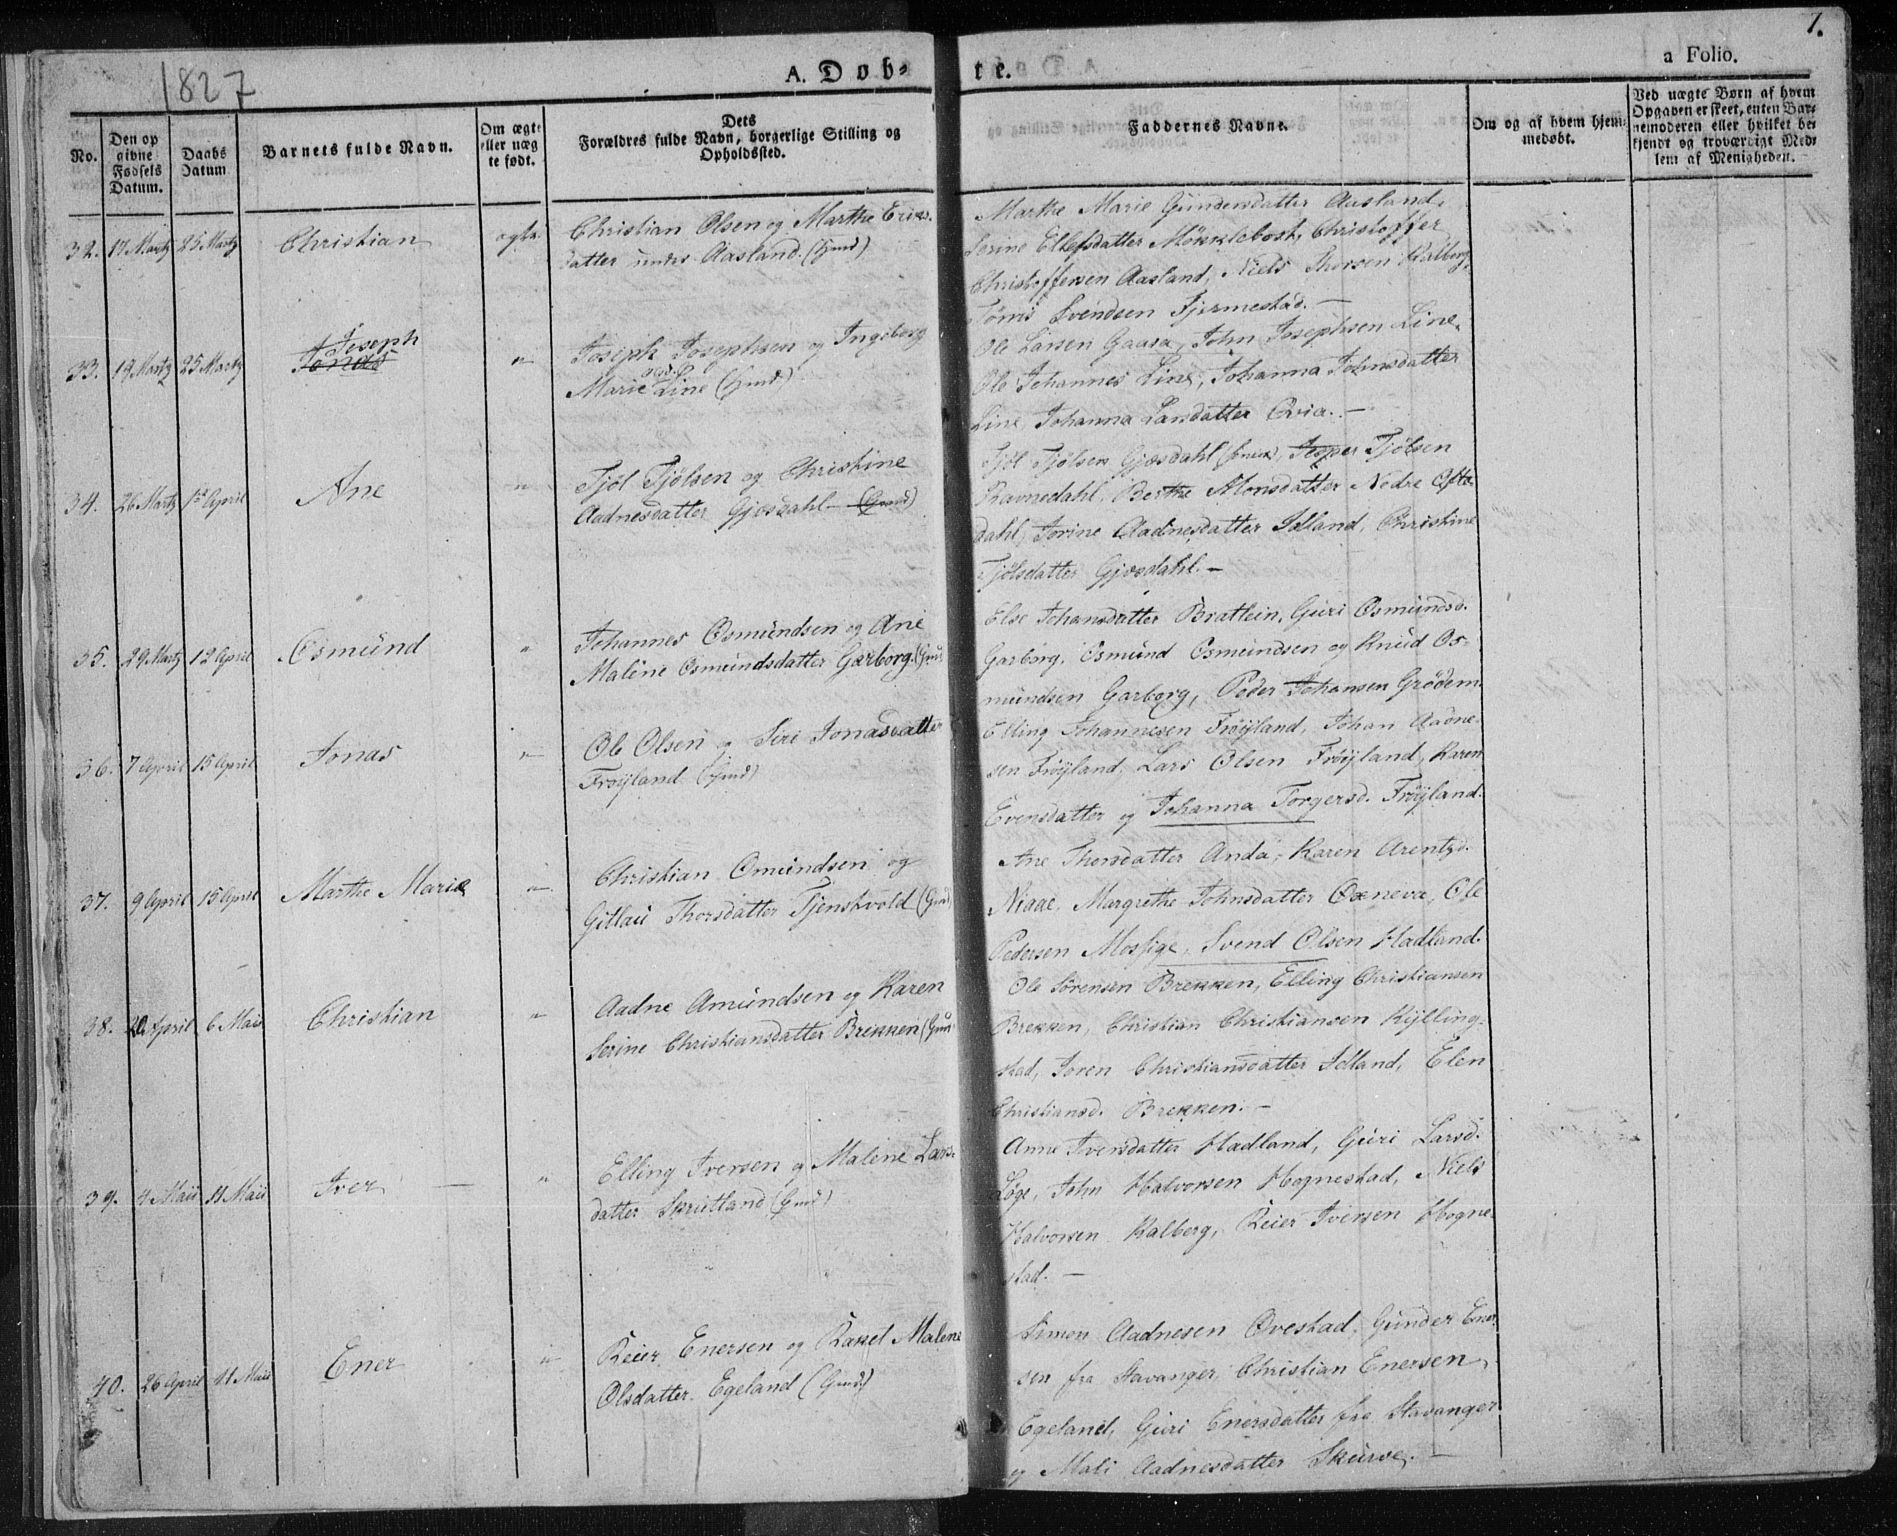 1827
7.
A. Døb=
te.
a Folio.
No.
Den op
givne
Fødsels
Datum.
Daabs
Datum
Barnets fulde Navn.
Om ægte
eller uæg
te født.
Dets
Forældres fulde Navn, borgerlige Stilling og
Opholdssted.
Faddernes Navne.
Om og af hvem hjem=
medøbt.
Ved uægte Børn af hvem
Opgaven er skeet, enten Bar=
nemoderen eller hvilket be
kjendt og troværdigt Med=
lem af Menigheden.
32. 17 Martz 25 Martz Christian ægte. Christian Olsen og Marthe Eriks.
datter under Aasland. (Gmd)
Marthe Marie Gundersdatter Aasland,
Serine Ellefsdatter Møkklebost, Christoffer
Christoffersen Aasland, Niels Thorsen Kalberg,
Tønnis Svendsen Fjermestad. —
33. 19 Martz 25 Martz Joseph
Jonas
" Joseph Josephsen og Ingeborg
Marie Line (Gmd)
Ole Larsen Gaara, John Josephsen Line,
Ole Johannes Line, Johanna Johnsdatter
Line, Johanna Larsdatter Qvia. —
34. 26 Martz 1ste April Ane " Tjöl Tjölsen og Christine
Aadnesdatter Gjesdahl — (Gmd)
Tjöl Tjölsen Gjesdahl, Jesper Tjölsen
Ravnedahl, Berthe Monsdatter Nedre Ofte
dahl, Jorine Aadnesdatter Idland, Christine
Tjölsdatter Gjesdahl. —
35. 29 Martz 12 April Osmund " Johannes Osmundsen og Ane
Malene Osmundsdatter Garborg. (Gmd
Else Johansdatter Bratlein, Guri Osmundsd.
Garborg, Osmund Osmundsen og Knud Os=
mundsen Garborg, Peder Johansen Grödem.
36. 7 April 15 April Jonas " Ole Olsen og Siri Jonasdatter
Fröyland (Gmd)
Elling Johannesen Fröyland, Johan Aadne=
sen Fröyland, Lars Olsen Fröyland, Karen
Evensdatter og Johanna Torgersd. Fröyland.
37. 9 April 15 April Marthe Marie " Christian Omundsen og
Gitlau Thorsdatter Tjensvold (Gmd)
Ane Thorsdatter Anda, Karen Arentzd.
Niaae, Margrethe Johnsdatter Oxneva, Ole
Pedersen Mossige, Svend Olsen Hadland.
38. 20 April 6 Mai Christian " Aadne Amundsen og Karen
Serine Christiansdatter Brekken (Gmd
Ole Sörensen Brekken, Elling Christiansen
Brekken, Christian Christiansen Kylling=
stad, Joren Christiansdatter Idland, Elen
Christiansd. Brekken. —
39. 4 Maii 11 Maii Iver — " Elling Iversen og Malene Lars=
datter Skrutland (Gmd)
Anne Iversdatter Hadland, Guri Larsd.
Löge, John Halvorsen Hognestad, Niels
Halvorsen Kalberg, Reier Iversen Hogne=
stad. —
40. 26 April 11 Maii Ener " Reier Enersen og Rakel Malene
Olsdatter Egeland (Gmd)
Simon Aadnesen Ovestad, Gunder Ener
sen fra Stavanger, Christian Enersen
Egeland, Guri Enersdatter fra Stavanger
og Mali Aadnesdatter Skurve. —